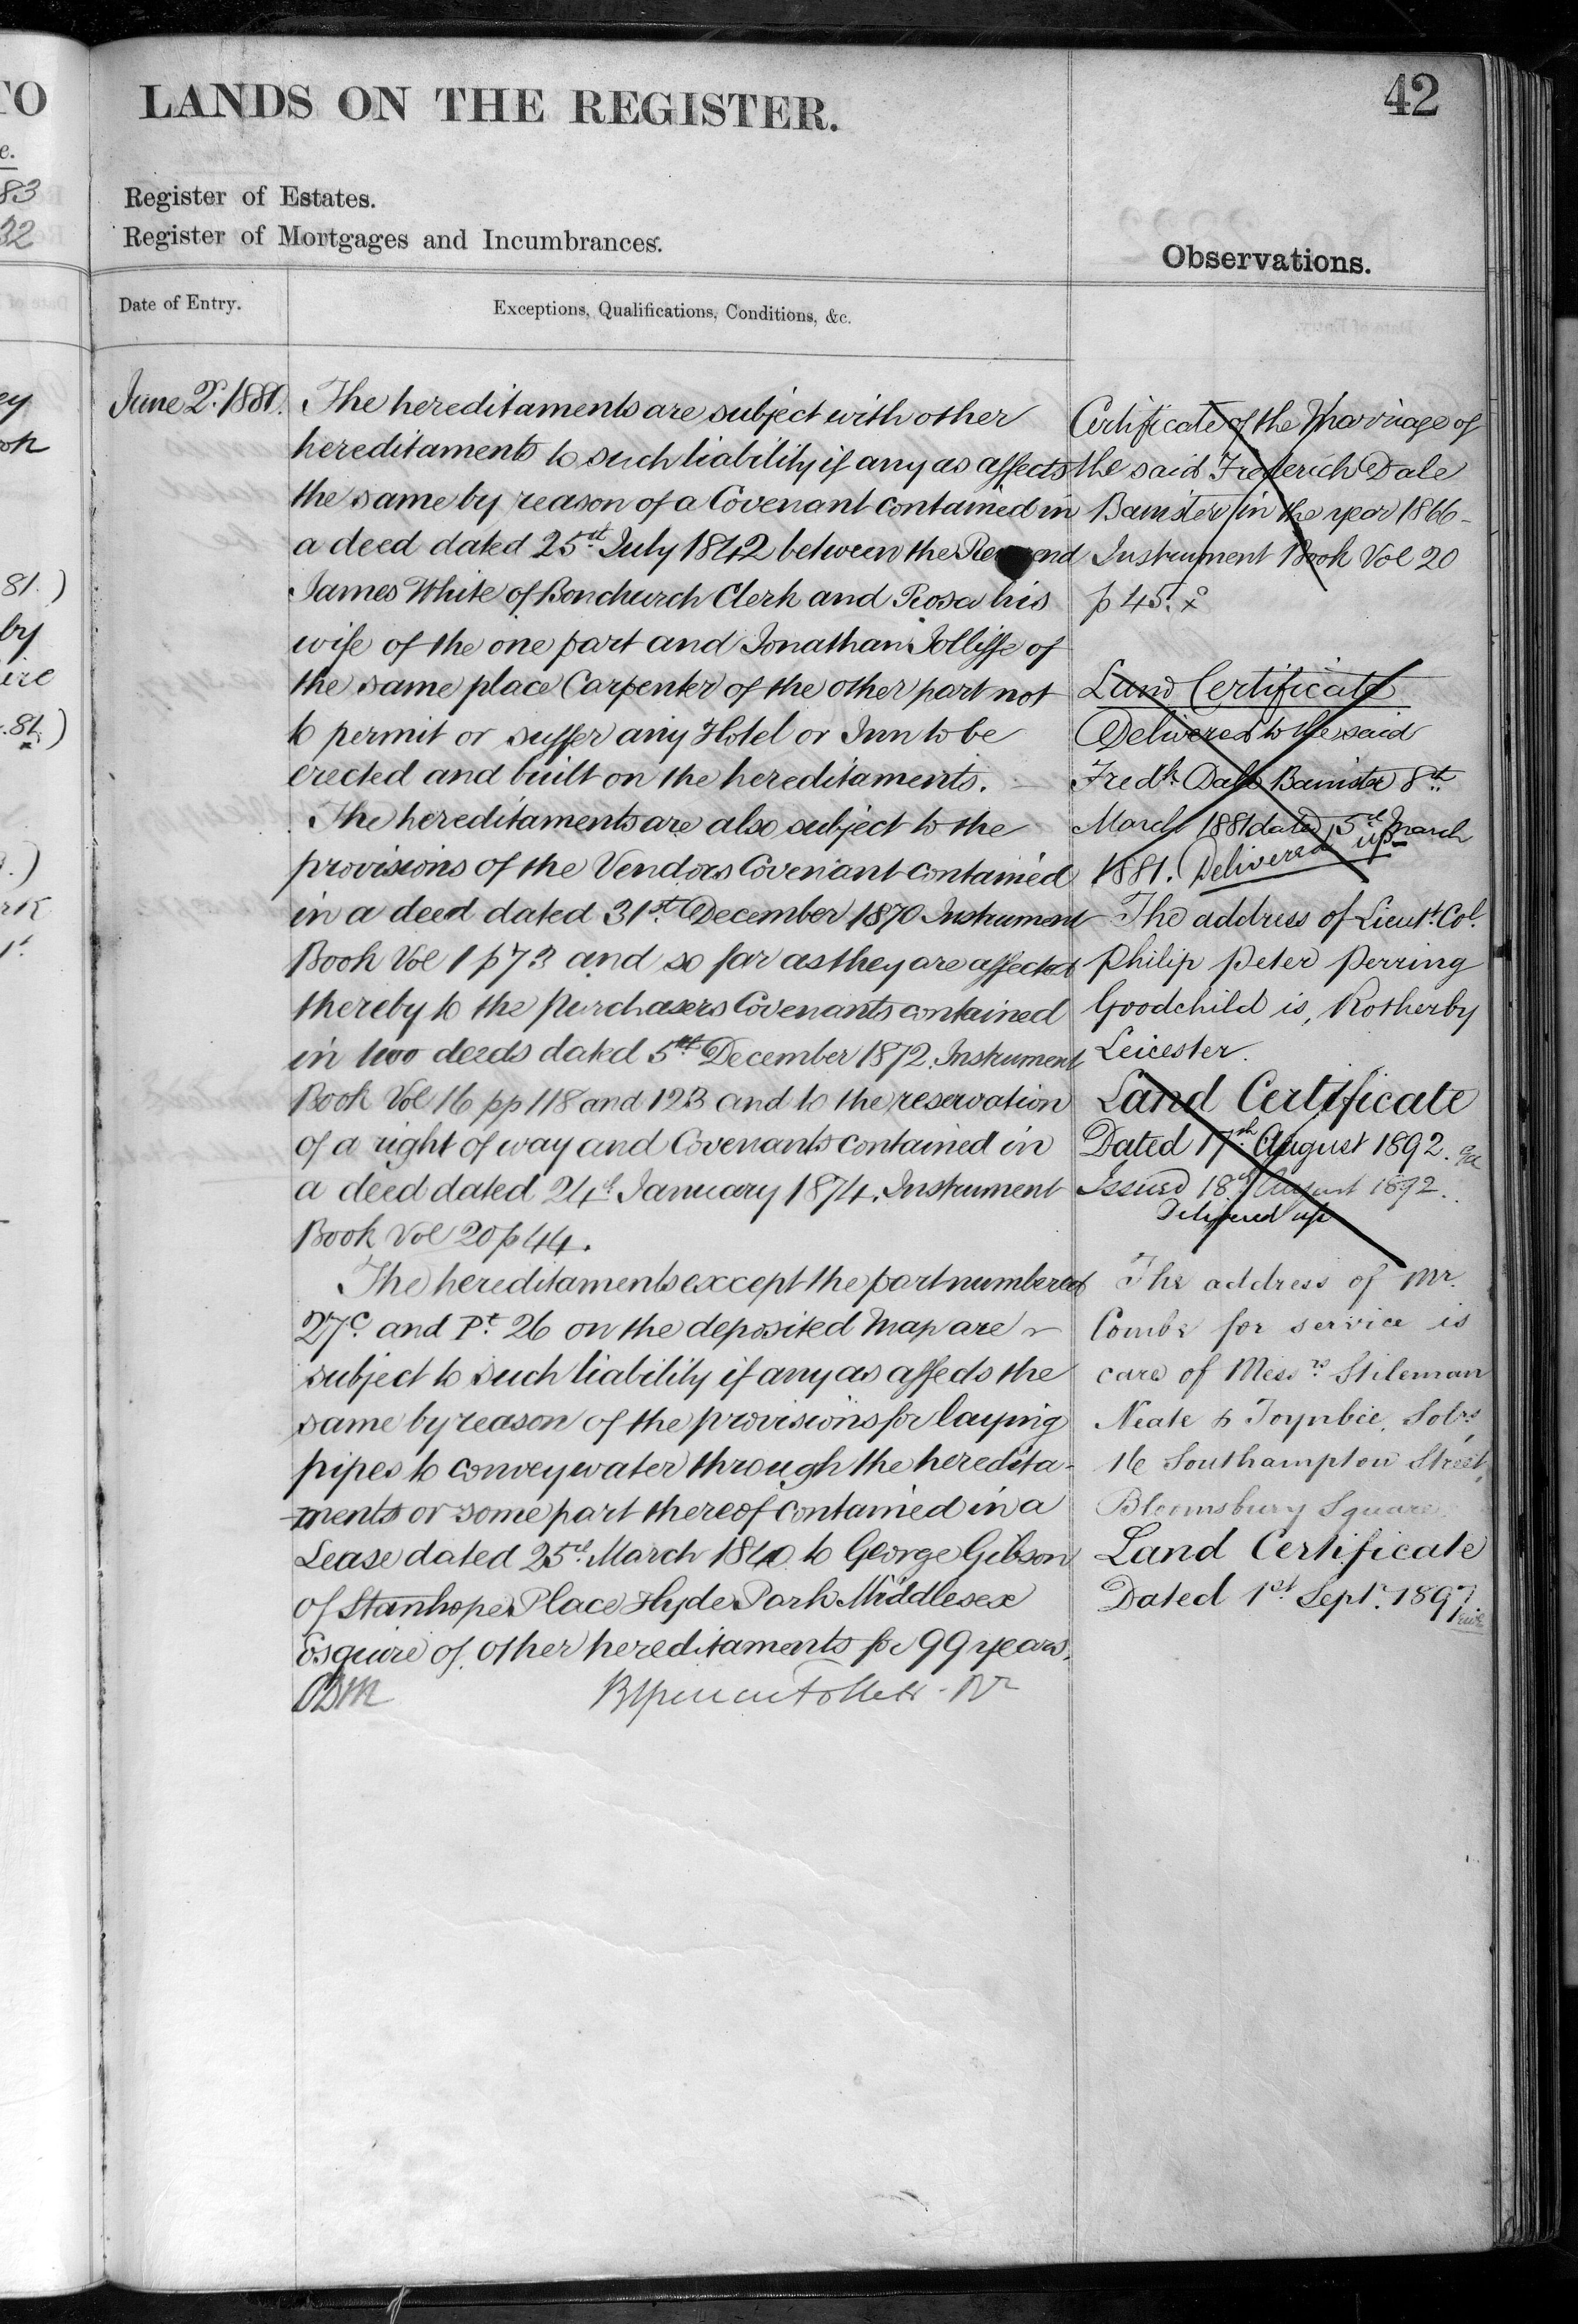 LANDS ON THE REGISTER.
42
Register of Estates.
Register of Mortgages and Incumbrances.
Observations.
Date of Entry.
Exceptions, Qualifications, Conditions, &c.
June 2d. 1881.
The hereditaments are subject with other
hereditaments to such liability if any as affects
the same by reason of a Covenant contained in
a deed dated 25th July 1842 between the
James White of Bonchurch Clerk and Rosa his
wife of the one part and Jonathan Jolliffe of
the same place Carpenter of the other part not
to permit or suffer any Hotel or Inn to be
erected and built on the hereditaments.
The hereditaments are also subject to the
provisions of the Vendors Covenant contained
in a deed dated 31st December 1870 Instrument
Book Vol 1 p 73 and so far as they are affected
thereby to the purchasers Covenants contained
in two deeds dated 5th December 1872. Instrument
Book Vol 16 pp 118 and 123 and to the reservation
of a right of way and Covenants contained in
a deed dated 24th January 1874. Instrument
Book Vol 20 p 44.
The hereditaments except the part numbered
27c. and Pt. 26 on the deposited Map are
subject to such liability if any as affects the
same by reason of the provisions for laying
pipes to convey water through the heredita-
ments or some part thereof contained in a
Lease dated 25th March 1840 to George Gibson
of Stanhope Place Hyde Park Middlesex
Esquire of other hereditaments for 99 years.
Certificate of the Marriage of
the said Frederick Dale
Banister in the year 1866-
Instrument Book Vol 20
p 45.
Land Certificate
Delivered to the said
Fredk. Dale Banister 8th
March 1881 dated 5th March
1881. Delivered up
The address of Lieut. Col.
Philip Peter Perring
Goodchild is, Rotherby
Leicester.
Land Certificate
Dated 17th August 1892.
Issued 18th August 1892.
Delivered up
The address of Mr.
Combe for service is
care of Messrs Stileman
Neate & Toynbee, Solrs
16 Southampton Street,
Bloomsbury Square.
Land Certificate
Dated 1st Sept. 1897